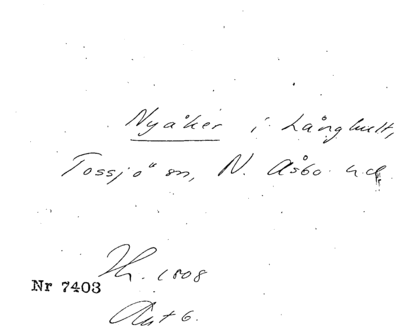 Nyåker i Långhult,
Tossjö sn, N. Åsbo hd.
Th. 1808
Nr 7403
Akt 6.